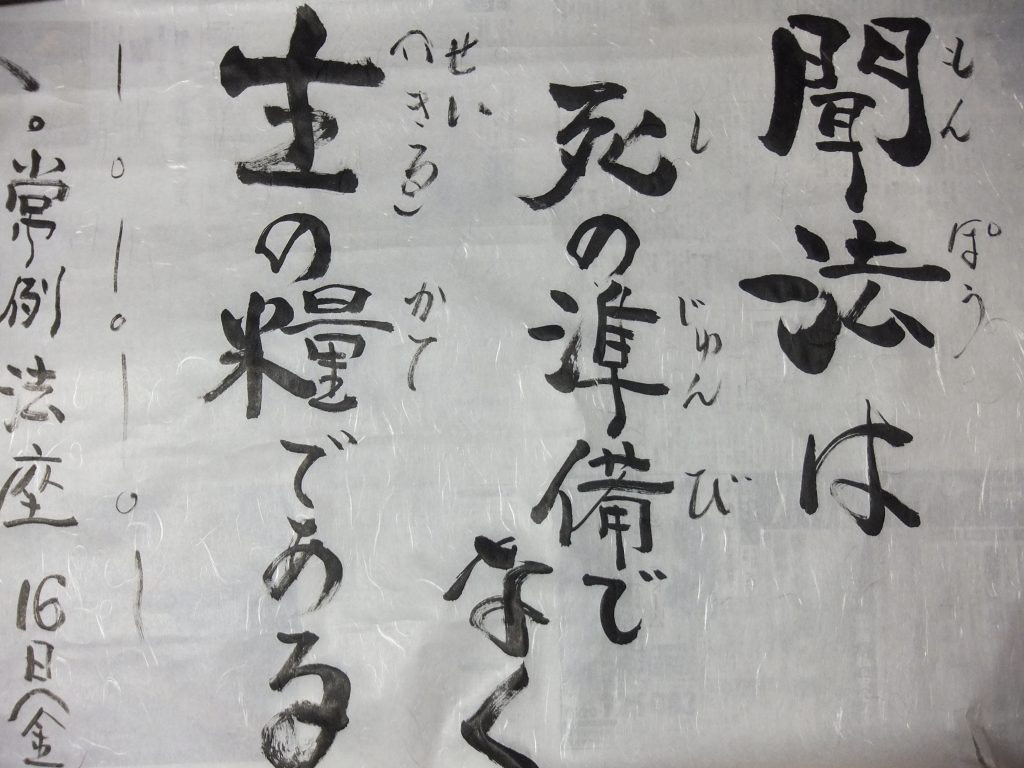 聞法は
もんぽう
死の準備で
しじゅんび
なく
生の糧である
せい(いきる)かて
。常例法座 16日(金